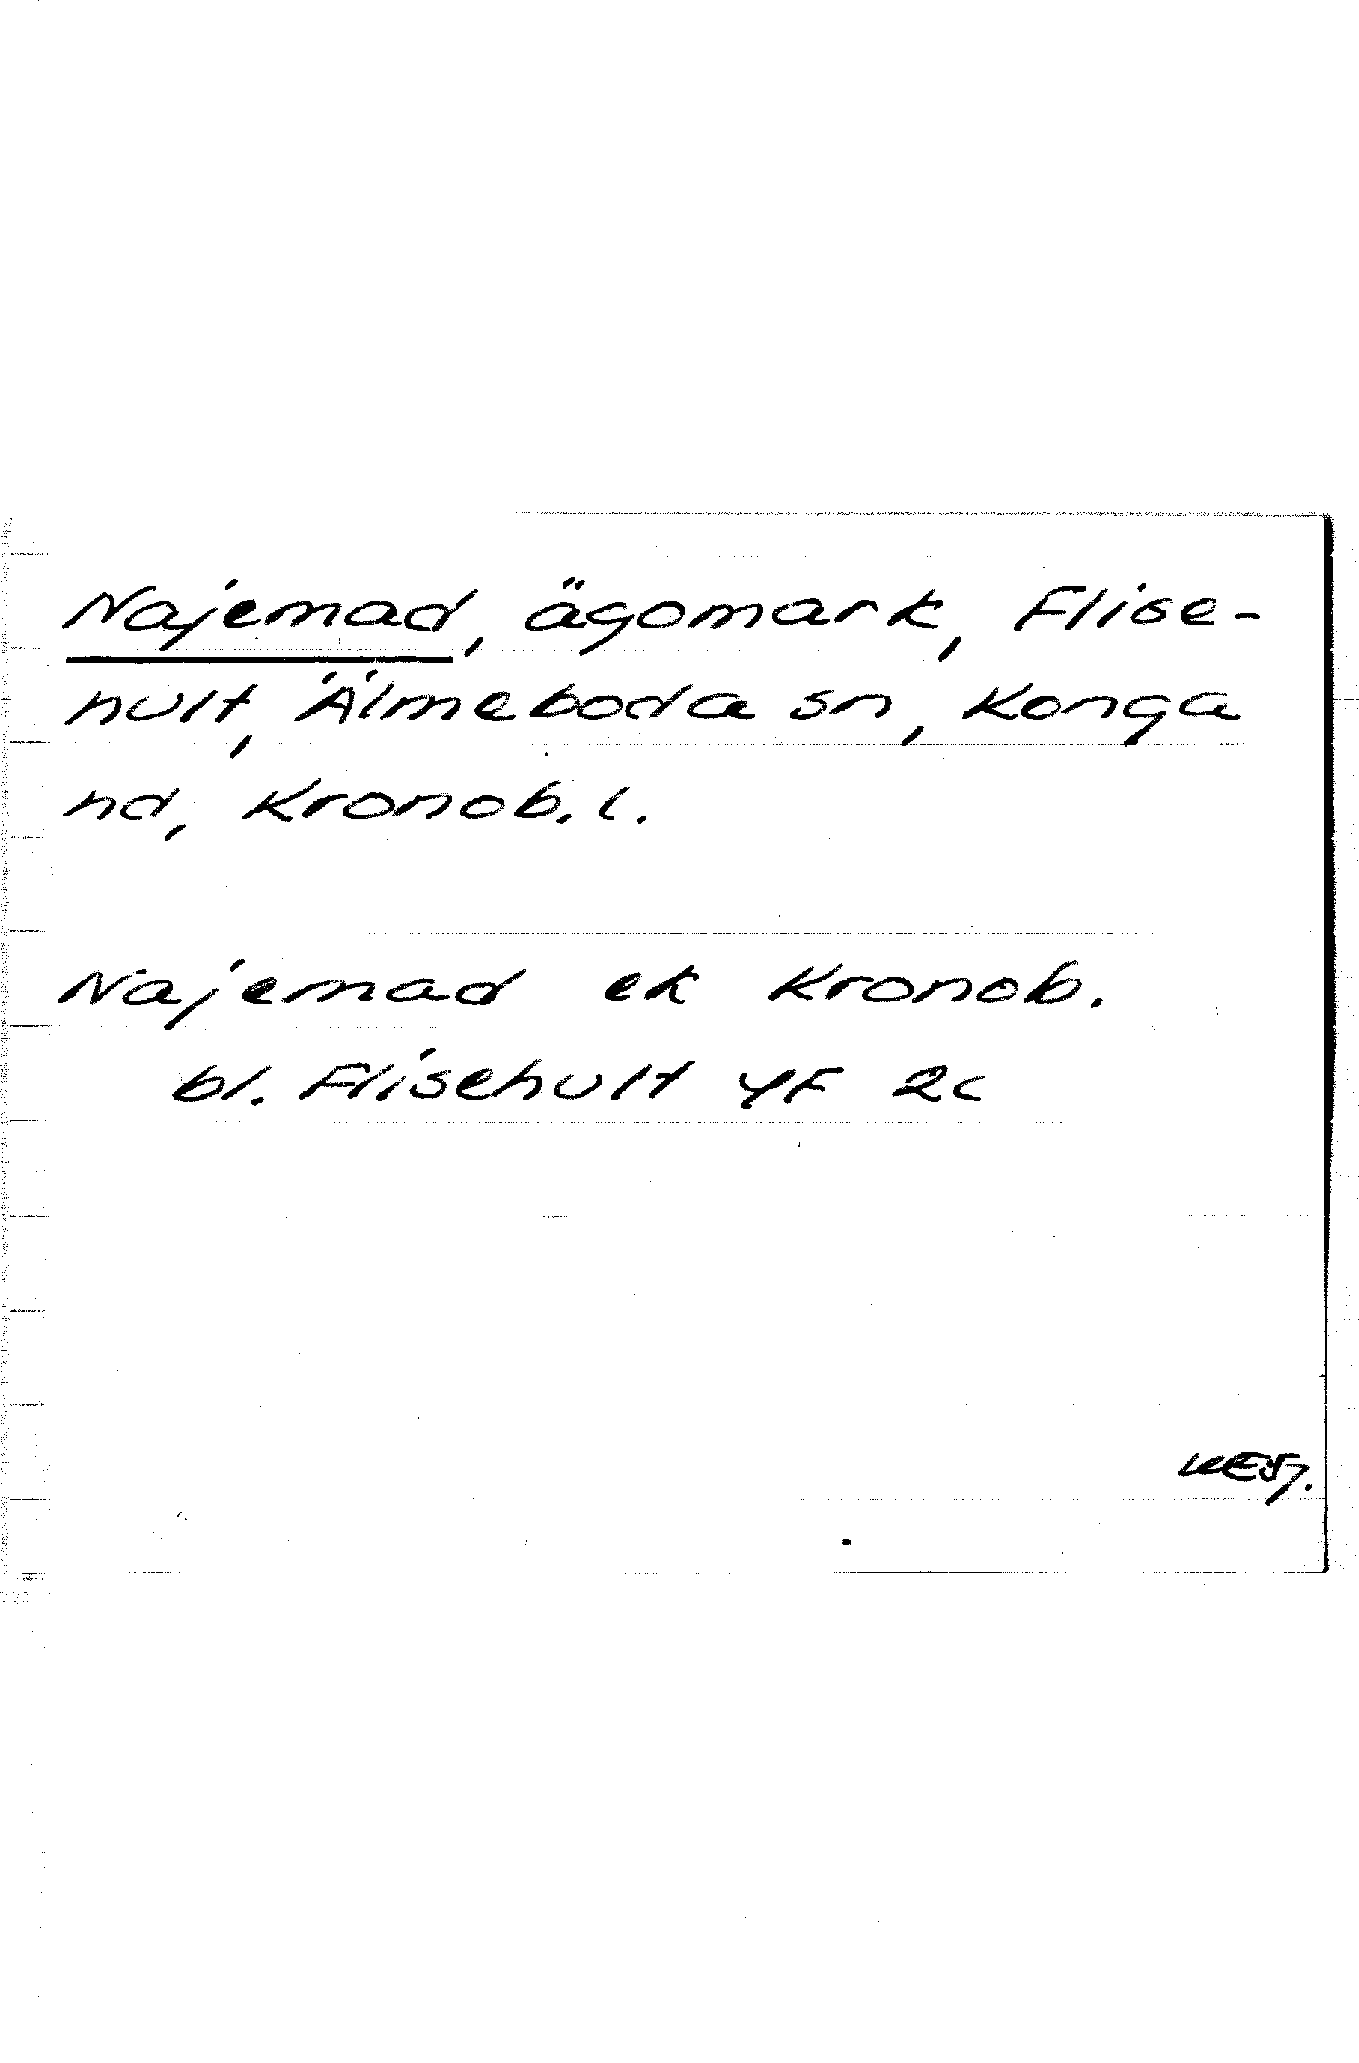 Najemad, ägomark, Flise-
hult, Älmeboda sn, Konga
hd, Kronob. l.
Najemad ek Kronob.
bl. Flisehult 4F 2c